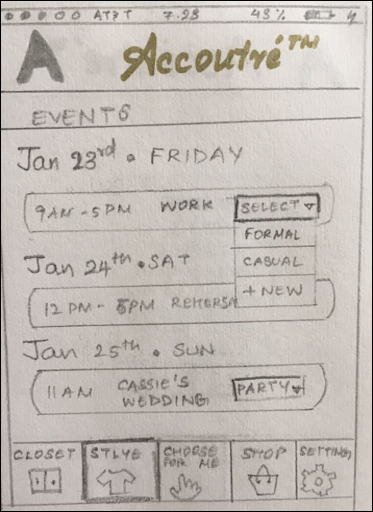 AT&T 7.23 43%
A Accoutré™
EVENTS
Jan 23rd • FRIDAY
9AM - 5PM WORK SELECT
FORMAL
CASUAL
+ NEW
Jan 24th • SAT
12 PM - 5PM REHERSA
Jan 25th • SUN
11AM CASSIE'S
WEDDING
PARTY
CLOSET
STLYE
CHOOSE
FOR ME
SHOP
SETTING